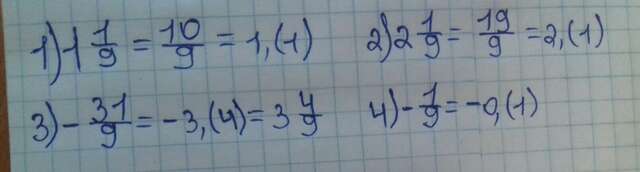 1) 1 1/9 = 10/9 = 1,(1) 2) 2 1/9 = 19/9 = 2,(1)
3) - 31/9 = -3,(4) = 3 4/9 4) - 1/9 = -0,(1)